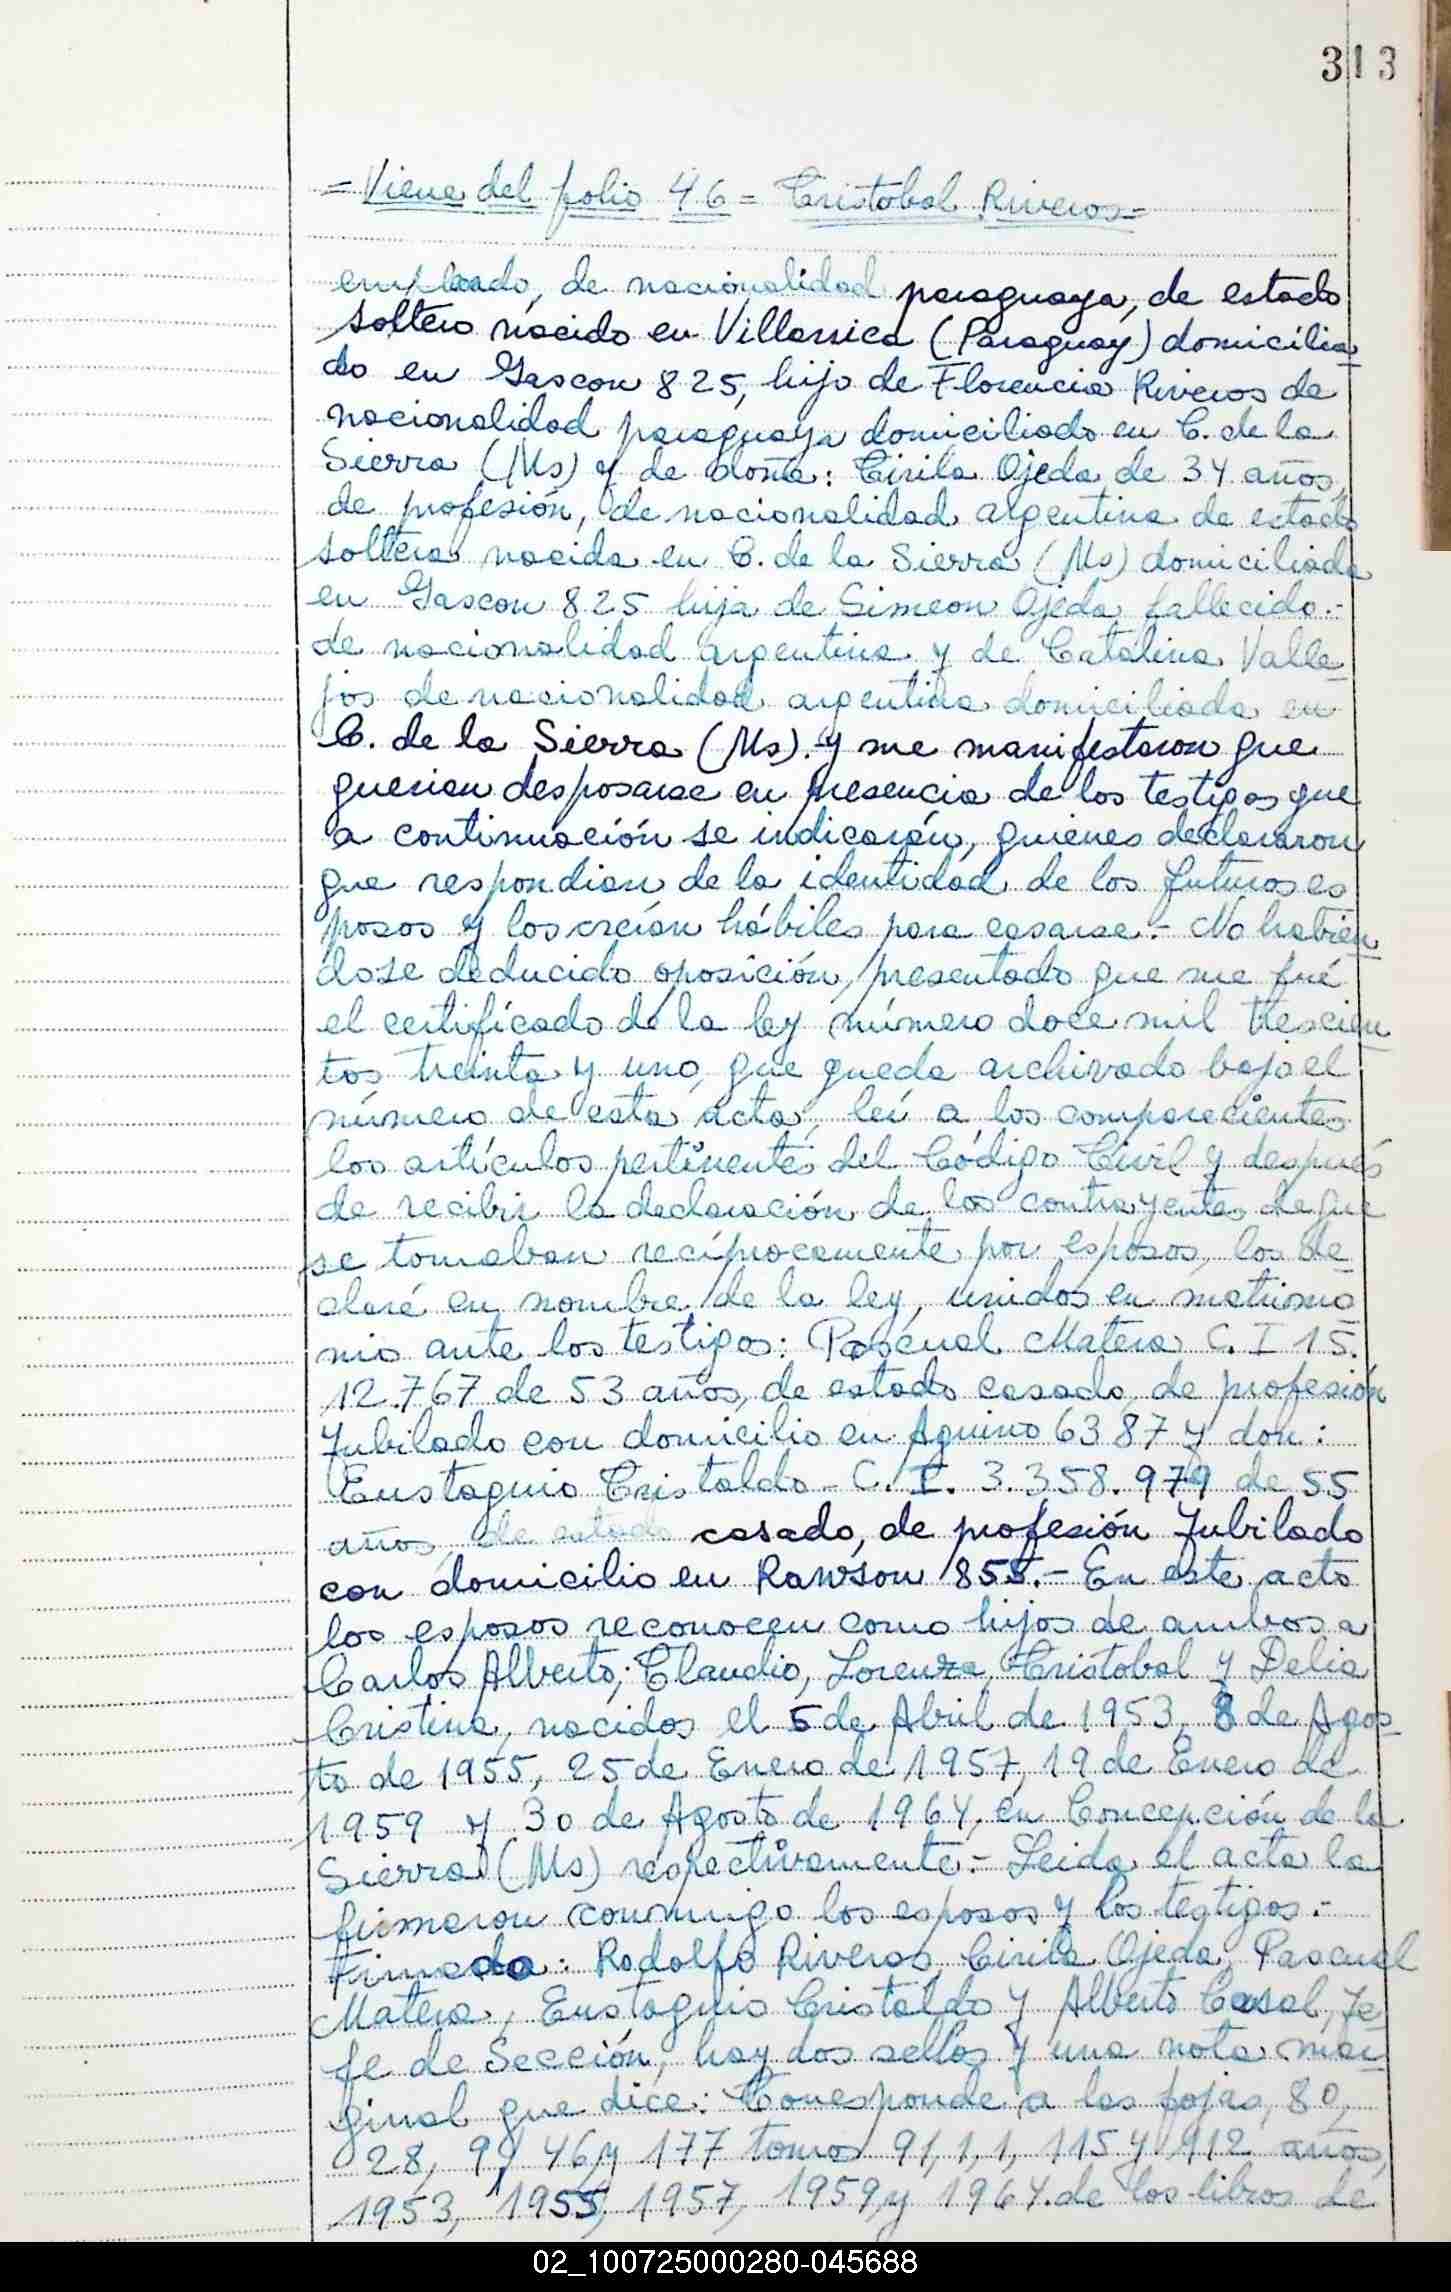 313
= Viene del folio 46 = Cristobal Riveros =
empleado, de nacionalidad paraguaya, de estado
soltero nacido en Villarrica (Paraguay) domicilia
do en Gascon 825, hijo de Florencia Riveros de
nacionalidad paraguaya domiciliado en C. de la
Sierra (Ms) y de doña: Cirila Ojeda de 34 años,
de profesión, de nacionalidad argentina de estado
soltera nacida en C. de la Sierra (Ms) domiciliada
en Gascon 825 hija de Simeon Ojeda fallecido.-
de nacionalidad argentina y de Catalina Valle
jos de nacionalidad argentina domiciliada en
C. de la Sierra (Ms). y me manifestaron que
querian desposarse en presencia de los testigos que
a continuación se indicarán, quienes declararon
que respondian de la identidad de los futuros es
posos y los creían hábiles para casarse.- No habien
dose deducido oposición, presentado que me fué
el certificado de la ley número doce mil trescien
tos treinta y uno, que queda archivado bajo el
número de esta acta, leí a los comparecientes
los artículos pertinentes del Código Civil y después
de recibir la declaración de los contrayentes de que
se tomaban recíprocamente por esposos, los de
claré en nombre de la ley, unidos en matrimo
nio ante los testigos: Pascual Matera C. I 15.
12.767 de 53 años, de estado casado, de profesión
Jubilado con domicilio en Aquino 6387 y don:
Eustaquio Cristaldo - C. I. 3.358.979 de 55
años, de estado casado, de profesión Jubilado
con domicilio en Rawson 855.- En este acto
los esposos reconocen como hijos de ambos a
Carlos Alberto; Claudio, Lorenza, Cristobal y Delia
Cristina, nacidos el 5 de Abril de 1953, 8 de Agos-
to de 1955, 25 de Enero de 1957, 19 de Enero de
1959 y 30 de Agosto de 1964, en Concepción de la
Sierra (Ms) respectivamente.- Leida el acta la
firmaron conmigo los esposos y los testigos.-
Firmado: Rodolfo Riveros, Cirila Ojeda, Pascual
Matera, Eustaquio Cristaldo y Alberto Casal, Je-
fe de Sección, hay dos sellos y una nota mar
ginal que dice: Corresponde a las fojas, 80,
28, 9, 46, y 177 tomos 91, 1, 1, 115 y 112 años,
1953, 1955, 1957, 1959, y 1964. de los libros de
02_100725000280-045688